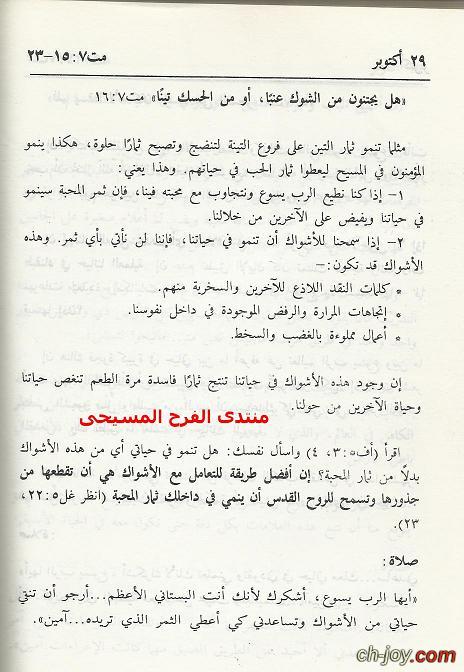 ٢٩ أكتوبر
مت٧: ١٥–٢٣
«هل يجتنون من الشوك عنبًا، أو من الحسك تينًا» مت٧: ١٦
مثلما تنمو ثمار التين على فروع التينة لتنضج وتصبح ثمارًا حلوة، هكذا ينمو
المؤمنون في المسيح ليعطوا ثمار الحب في حياتهم. وهذا يعني:
١– إذا كنا نطيع الرب يسوع ونتجاوب مع محبته فينا، فإن ثمر المحبة سينمو
في حياتنا ويفيض على الآخرين من خلالنا.
٢– إذا سمحنا للأشواك أن تنمو في حياتنا، فإننا لن نأتي بأي ثمر. وهذه
الأشواك قد تكون:—
* كلمات النقد اللاذع للآخرين والسخرية منهم.
* إتجاهات المرارة والرفض الموجودة في داخل نفوسنا.
* أعمال مملوءة بالغضب والسخط.
إن وجود هذه الأشواك في حياتنا تنتج ثمارًا فاسدة مرة الطعم تنغص حياتنا
وحياة الآخرين من حولنا.
منتدى الفرح المسيحى
اقرأ (أف٥: ٣، ٤) واسأل نفسك: هل تنمو في حياتي أي من هذه الأشواك
بدلاً من ثمار المحبة؟ إن أفضل طريقة للتعامل مع الأشواك هي أن تقطعها من
جذورها وتسمح للروح القدس أن ينمي في داخلك ثمار المحبة (انظر غل٥: ٢٢،
٢٣).
صلاة:
«أيها الرب يسوع، أشكرك لأنك أنت البستاني الأعظم...أرجو أن تنقي
حياتي من الأشواك وتساعدني كي أعطي الثمر الذي تريده...آمين».
ch-joy.com